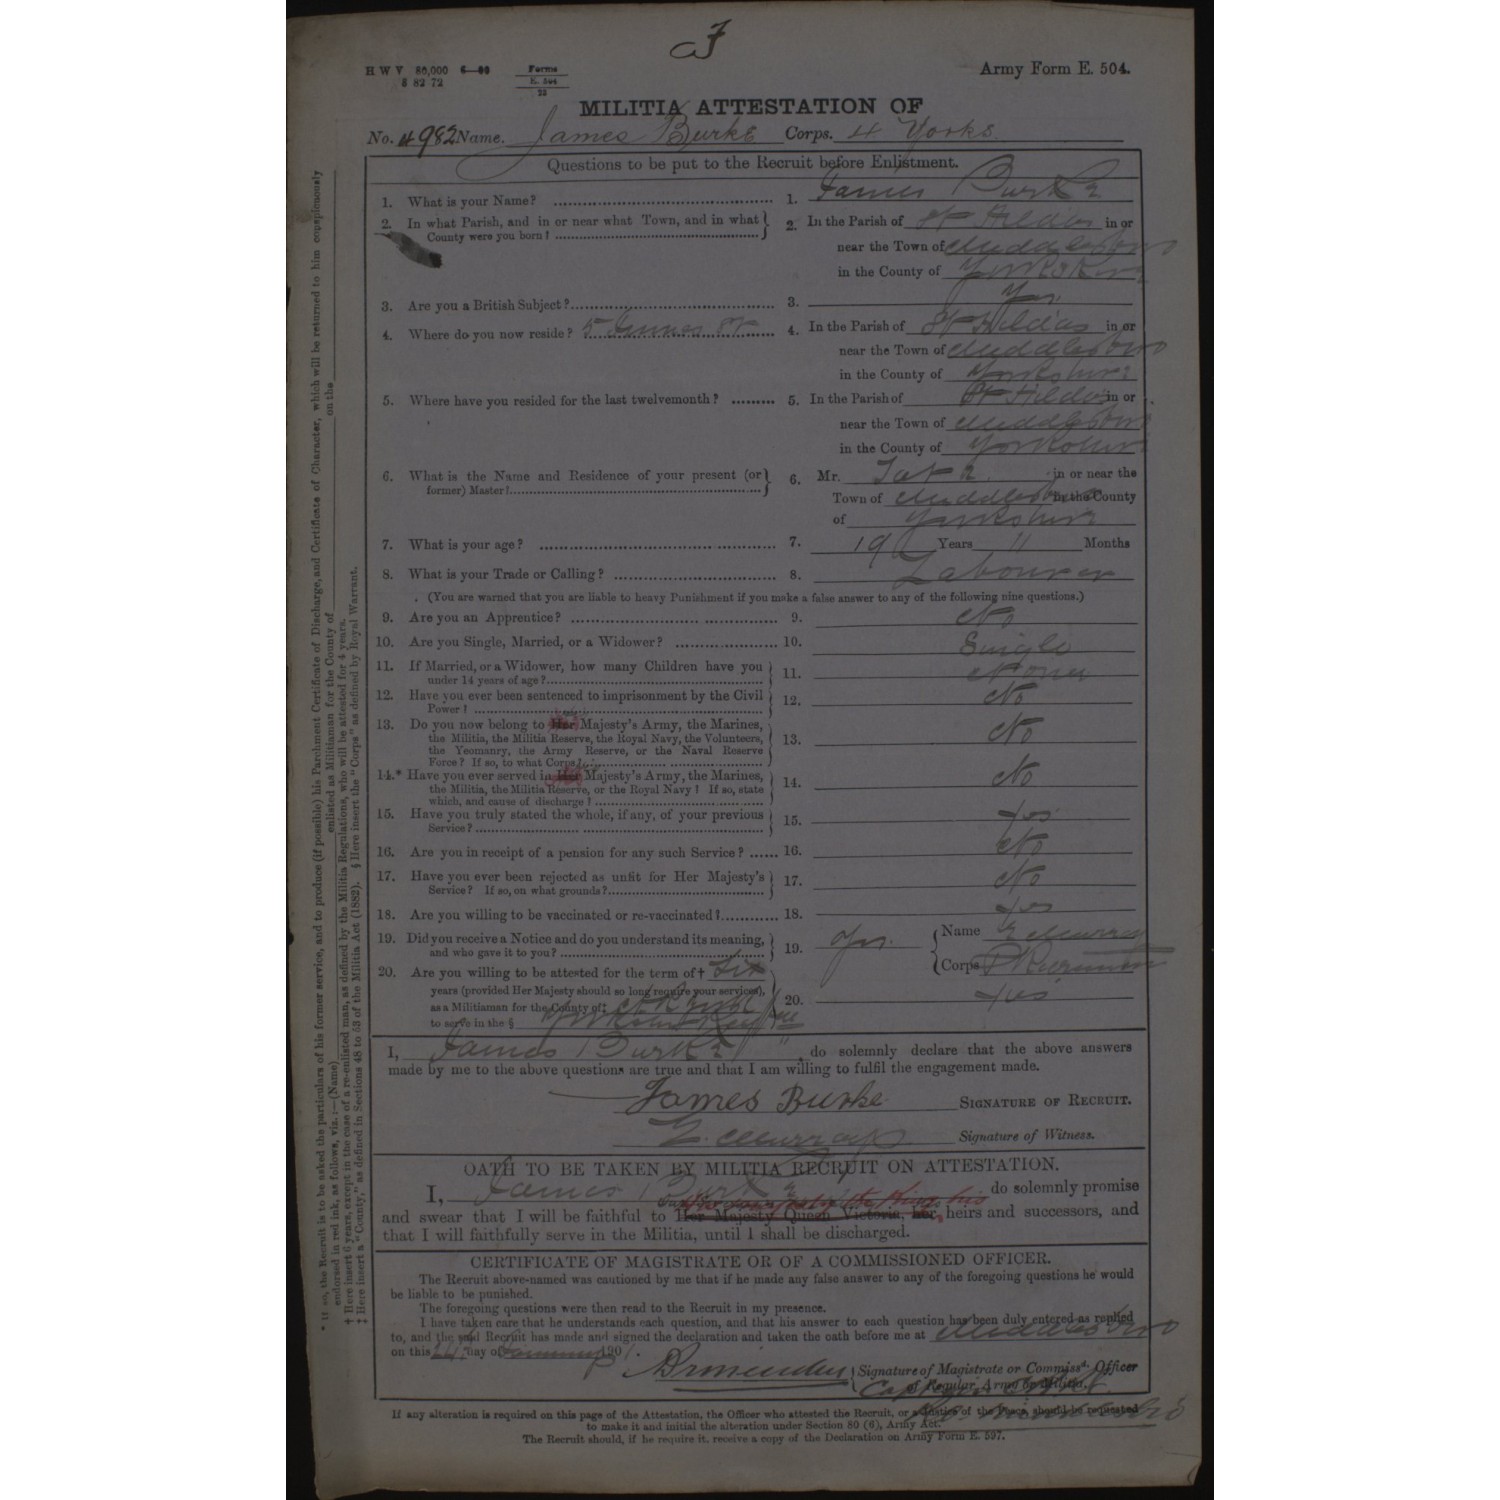 F
H W V 80,000 6—00 Forms
8 82 72 E. 504
28
Army Form E. 504.
MILITIA ATTESTATION OF
No. 4982 Name. James Burke Corps. 4 Yorks
Questions to be put to the Recruit before Enlistment.
1. What is your Name? 1. James Burke
2. In what Parish, and in or near what Town, and in what County were you born? 2. In the Parish of St Hildas in or
near the Town of Middlesbro
in the County of Yorkshire
3. Are you a British Subject? 3. Yes
4. Where do you now reside? 5 St 4. In the Parish of St Hildas in or
near the Town of Middlesbro
in the County of Yorkshire
5. Where have you resided for the last twelvemonth? 5. In the Parish of St Hildas in or
near the Town of Middlesbro
in the County of Yorkshire
6. What is the Name and Residence of your present (or former) Master? 6. Mr. in or near the
Town of Middlesbro in the County
of Yorkshire
7. What is your age? 7. 19 Years 11 Months
8. What is your Trade or Calling? 8. Labourer
(You are warned that you are liable to heavy Punishment if you make a false answer to any of the following nine questions.)
9. Are you an Apprentice? 9. No
10. Are you Single, Married, or a Widower? 10. Single
11. If Married, or a Widower, how many Children have you under 14 years of age? 11. None
12. Have you ever been sentenced to imprisonment by the Civil Power? 12. No
13. Do you now belong to Her Majesty's Army, the Marines,
the Militia, the Militia Reserve, the Royal Navy, the Volunteers,
the Yeomanry, the Army Reserve, or the Naval Reserve
Force? If so, to what Corps? 13. No
14.* Have you ever served in Her Majesty's Army, the Marines,
the Militia, the Militia Reserve, or the Royal Navy? If so, state
which, and cause of discharge? 14. No
15. Have you truly stated the whole, if any, of your previous Service? 15. Yes
16. Are you in receipt of a pension for any such Service? 16. No
17. Have you ever been rejected as unfit for Her Majesty's Service? If so, on what grounds? 17. No
18. Are you willing to be vaccinated or re-vaccinated? 18. Yes
19. Did you receive a Notice and do you understand its meaning, and who gave it to you? 19. Yes Name E Murray
Corps
20. Are you willing to be attested for the term of † Six
years (provided Her Majesty should so long require your services),
as a Militiaman for the County of ‡
to serve in the § 20. Yes
I, James Burke, do solemnly declare that the above answers
made by me to the above questions are true and that I am willing to fulfil the engagement made.
James Burke SIGNATURE OF RECRUIT.
E. Murray Signature of Witness.
OATH TO BE TAKEN BY MILITIA RECRUIT ON ATTESTATION.
I, James Burke do solemnly promise
the King his
and swear that I will be faithful to Her Majesty Queen Victoria, her, heirs and successors, and
that I will faithfully serve in the Militia, until I shall be discharged.
CERTIFICATE OF MAGISTRATE OR OF A COMMISSIONED OFFICER.
The Recruit above-named was cautioned by me that if he made any false answer to any of the foregoing questions he would
be liable to be punished.
The foregoing questions were then read to the Recruit in my presence.
I have taken care that he understands each question, and that his answer to each question has been duly entered as replied
to, and the said Recruit has made and signed the declaration and taken the oath before me at Middlesbro
on this 24 day of January 1901.
Signature of Magistrate or Commissd. Officer
of Regular Army or Militia.
If any alteration is required on this page of the Attestation, the Officer who attested the Recruit, or a Justice of the Peace, should be requested
to make it and initial the alteration under Section 80 (6), Army Act.
The Recruit should, if he require it, receive a copy of the Declaration on Army Form E. 597.
* If so, the Recruit is to be asked the particulars of his former service, and to produce (if possible) his Parchment Certificate of Discharge, and Certificate of Character, which will be returned to him conspicuously
endorsed in red ink, as follows, viz.:—(Name) enlisted as Militiaman for the County of on the
† Here insert 6 years, except in the case of a re-enlisted man, as defined by the Militia Regulations, who will be attested for 4 years.
‡ Here insert a "County," as defined in Sections 48 to 53 of the Militia Act (1882). § Here insert the "Corps" as defined by Royal Warrant.